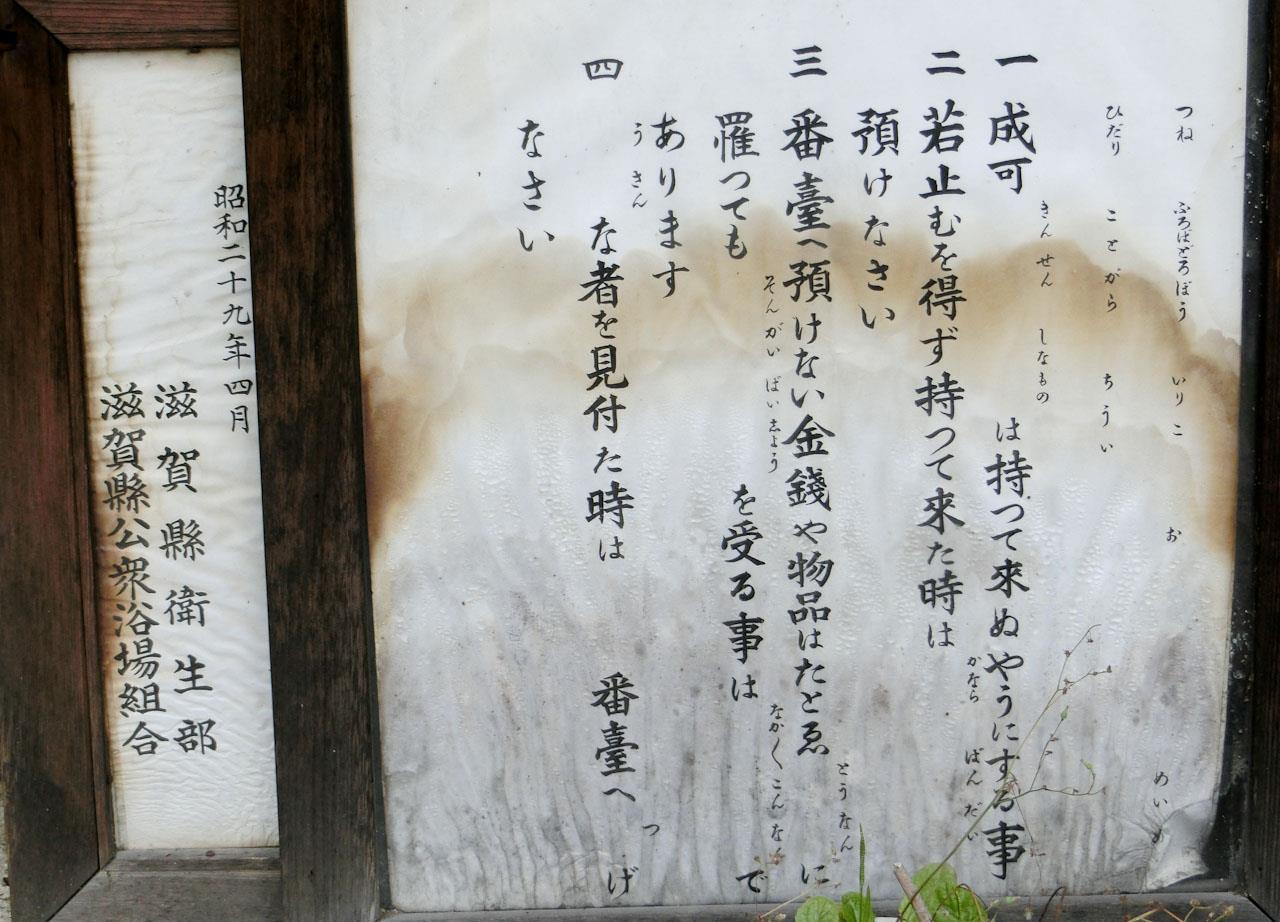 つね ふろばどろぼう いりこ お めいめ
ひだり ことがら ちうい
きんせん しなもの
一 成可 は持つて來ぬやうにする事
かなら ばんだい
二 若止むを得ず持つて來た時は
預けなさい
とうなん
三 番臺へ預けない金錢や物品はたとゑ に
そんがい ばいしよう なか〳〵こんなん
罹つても を受る事は で
あります
うきん つ
四 な者を見付た時は 番臺へ げ
なさい
昭和二十九年四月
滋賀縣衛生部
滋賀縣公衆浴場組合